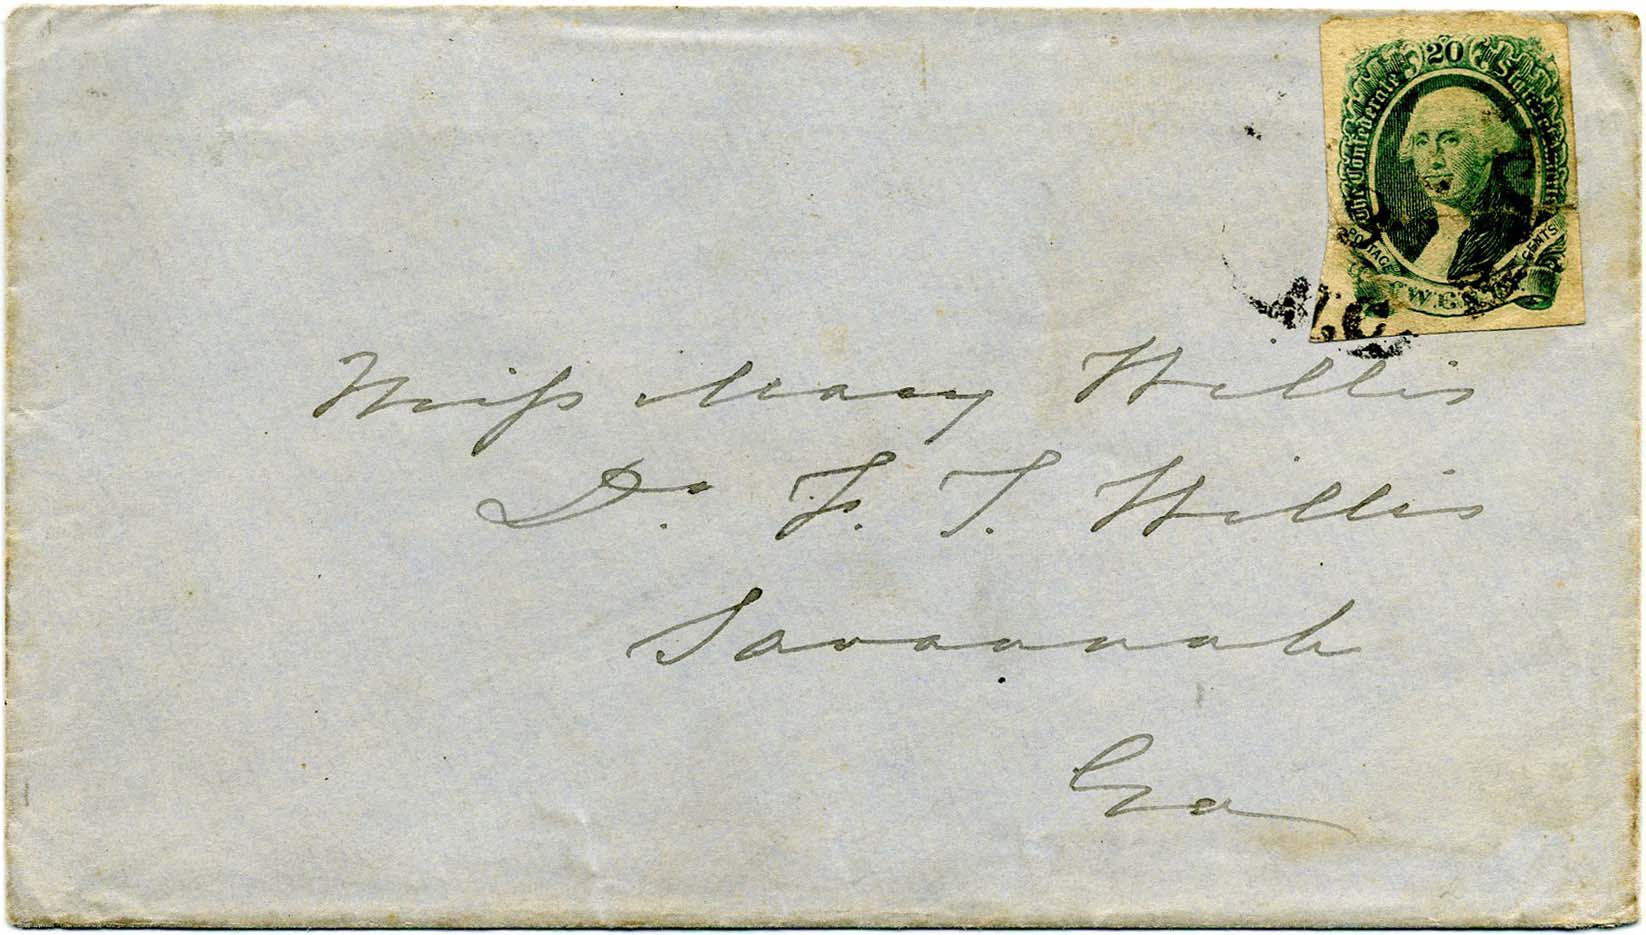 20
The Confederate States of America
POSTAGE TWENTY CENTS
N.C.
Miſs Mary Willis
Dr. F. T. Willis
Savannah
Ga